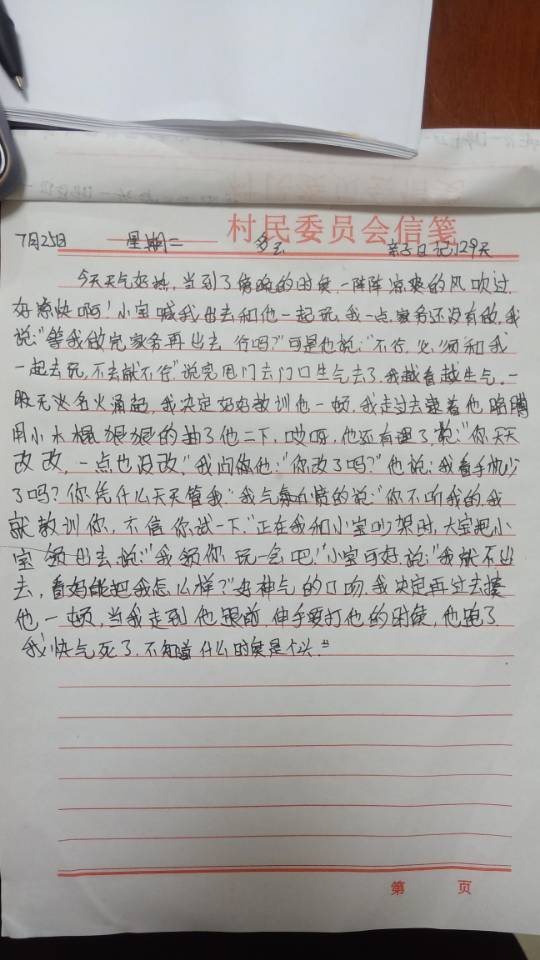 村民委员会信笺
7月25日 星期二 多云 亲子日记129天
今天天气好热,当到了傍晚的时候,一阵阵凉爽的风吹过,
好凉快啊!小宝喊我出去和他一起玩,我一点家务还没有做,我
说:"等我做完家务再出去,行吗?"可是他说:"不行,必须和我
一起去玩,不去就不行"说完甩门去门口生气去了,我越看越生气,一
股无火名火涌起,我决定好好教训他一顿,我走过去 着他 
用小木棍狠狠的抽了他二下,哎呀,他还有理了,说:"你天天
改改,一点也没改,"我问他:"你改了吗?"他说:我看手机少
了吗?你凭什么天天管我"我气 的说:"你不听我的,我
就教训你,不信你试一下,"正在我和小宝吵架时,大宝把小
宝领出去,说:"我领你玩一会吧!"小宝可好,说:"我就不出
去,看妈能把我怎么样?"好神气的口吻,我决定再过去揍
他一顿,当我走到他跟前,伸手要打他的时候,他跑了
我快气死了,不知道什么时候是个头。"
第 页